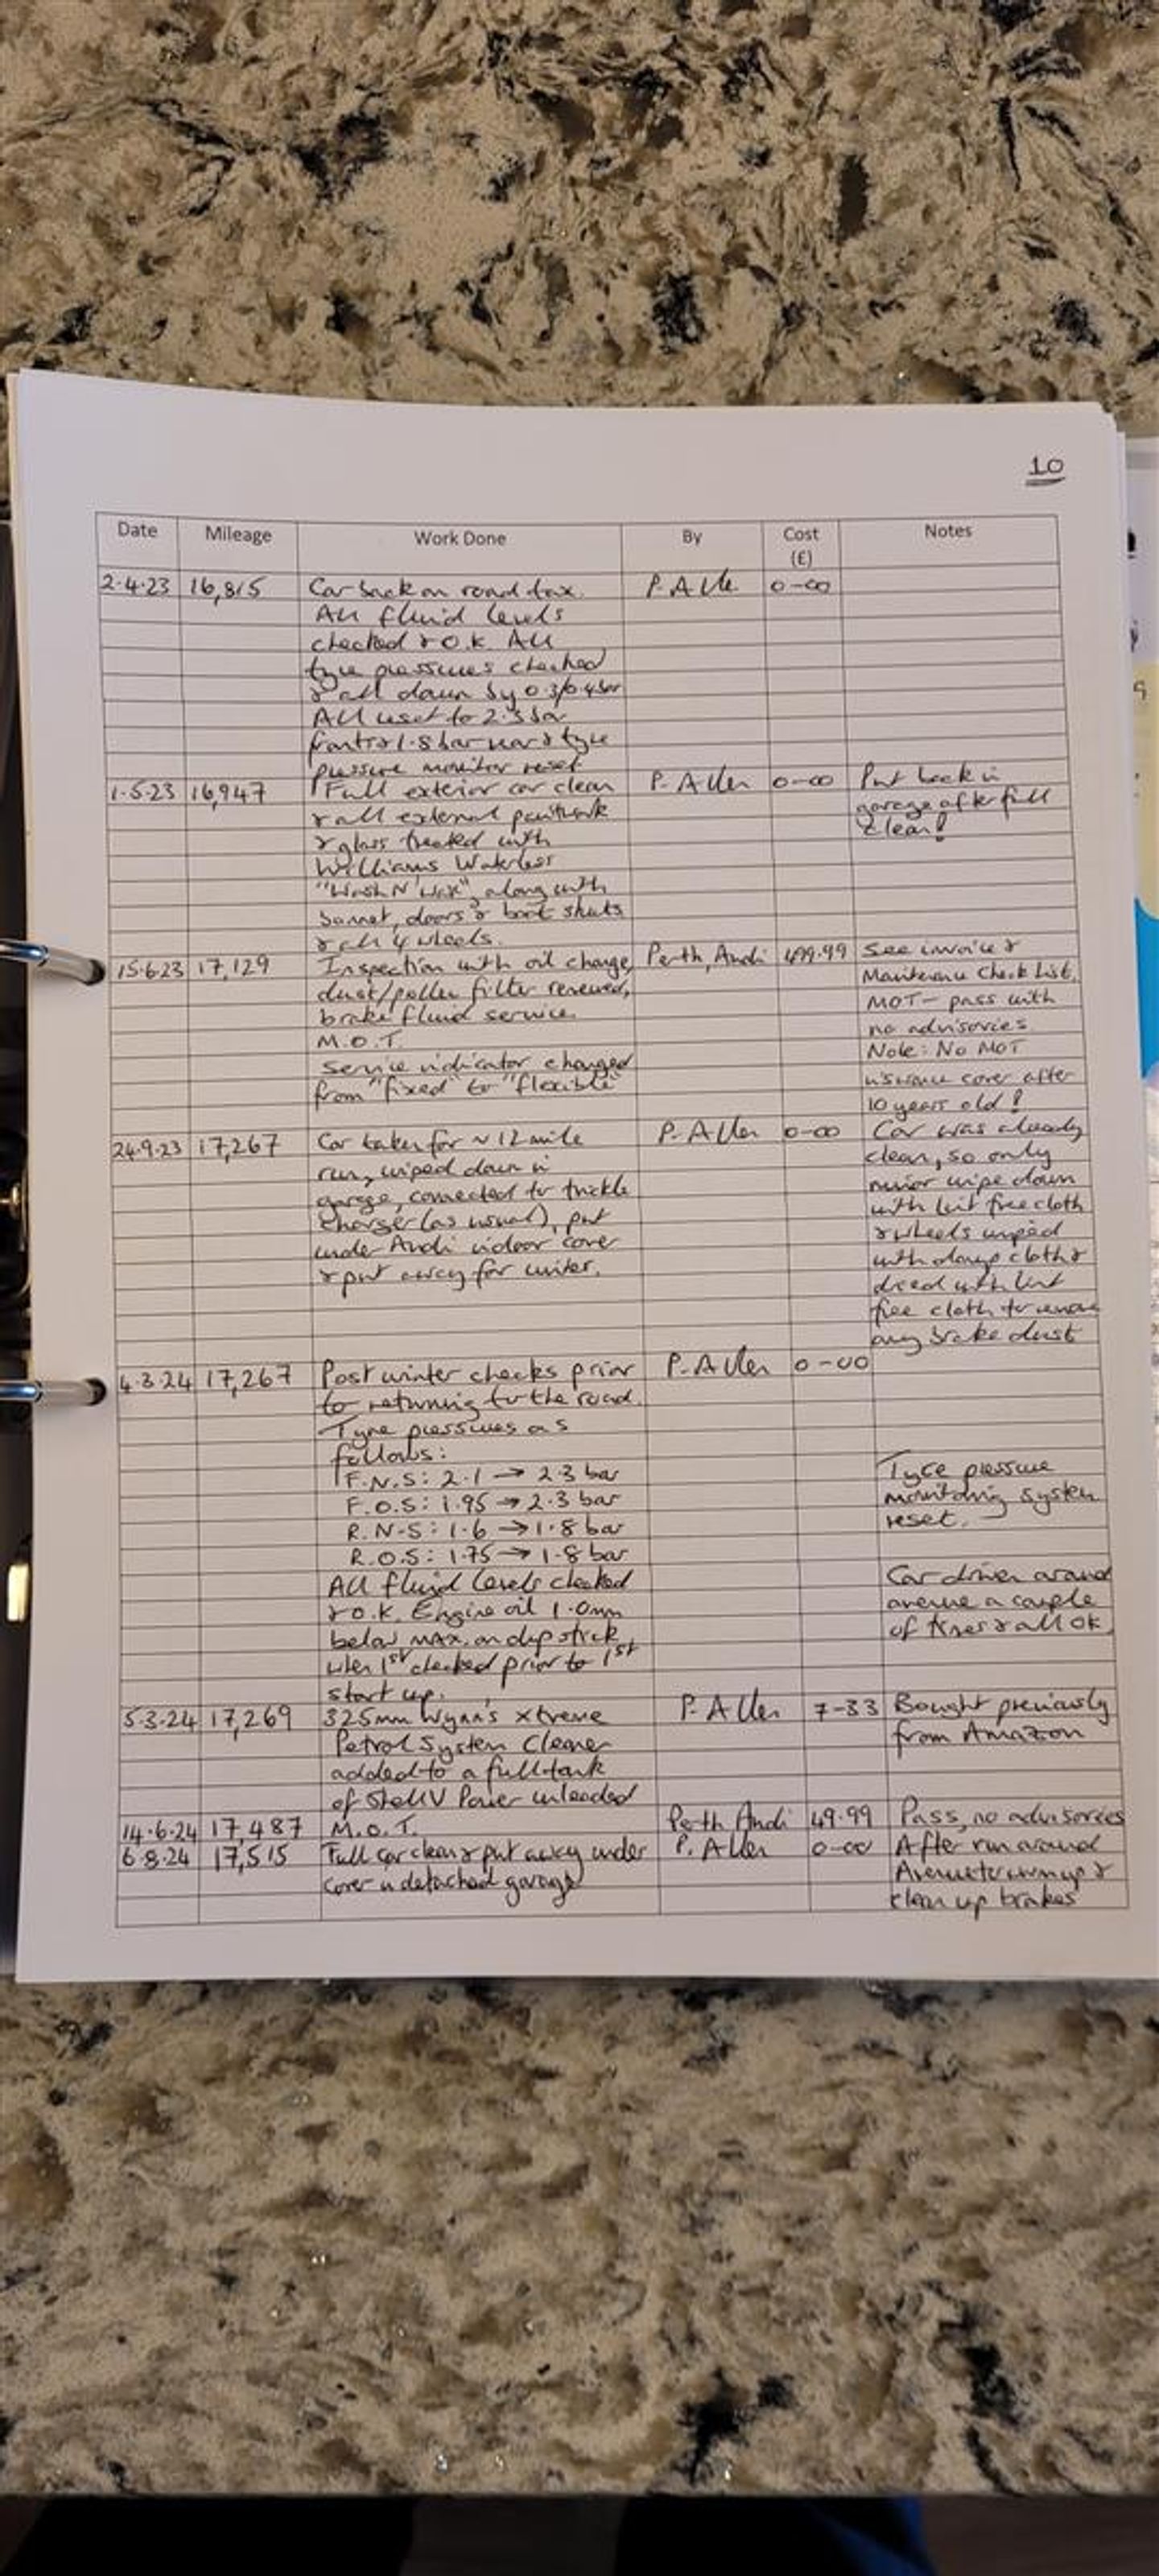 10
Date Mileage Work Done By Cost (£) Notes
2.4.23 16,815 Car back on road tax. P. Allen 0-00
All fluid levels
checked & O.K. All
tyre pressures checked
& all down by 0.3/0.4bar
All reset to 2.3 bar
front & 1.8 bar rear & tyre
pressure monitor reset
1.5.23 16,947 Full exterior car clean P. Allen 0-00 Put back in
& all external paintwork garage after full
& glass treated with clean!
Williams Waterless
"Wash N Wax", along with
bonnet, doors & boot shuts
& all 4 wheels.
15.6.23 17,129 Inspection with oil change, Perth, Audi 499.99 See invoice &
dust/pollen filter renewed, Maintenance Check List.
brake fluid service. MOT - pass with
M.O.T. no advisories
Service indicator changed Note: No MOT
from "fixed" to "flexible" insurance cover after
10 years old!
24.9.23 17,267 Car taken for ~ 12 mile P. Allen 0-00 Car was already
run, wiped down in clean, so only
garage, connected to trickle minor wipe down
charger (as usual), put with lint free cloth
under Audi indoor cover & wheels wiped
& put away for winter. with damp cloth &
dried with lint
free cloth to remove
any brake dust
4.3.24 17,267 Post winter checks prior P. Allen 0-00
to returning to the road.
Tyre pressures as
follows:
F.N.S: 2.1 → 2.3 bar Tyre pressure
F.O.S: 1.95 → 2.3 bar monitoring system
R.N.S: 1.6 → 1.8 bar reset.
R.O.S: 1.75 → 1.8 bar
All fluid levels checked Car driven around
& O.K. Engine oil 1.0mm avenue a couple
below MAX. on dipstick of times & all OK.
when 1st checked prior to 1st
start up.
5.3.24 17,269 325mm Wynn's xtreme P. Allen 7-33 Bought previously
Petrol System Cleaner from Amazon
added to a full tank
of Shell V Power unleaded
14.6.24 17,487 M.O.T. Perth Audi 49.99 Pass, no advisories
6.8.24 17,515 Full car clean & put away under P. Allen 0-00 After run around
cover in detached garage Avenue to warm up &
clean up brakes